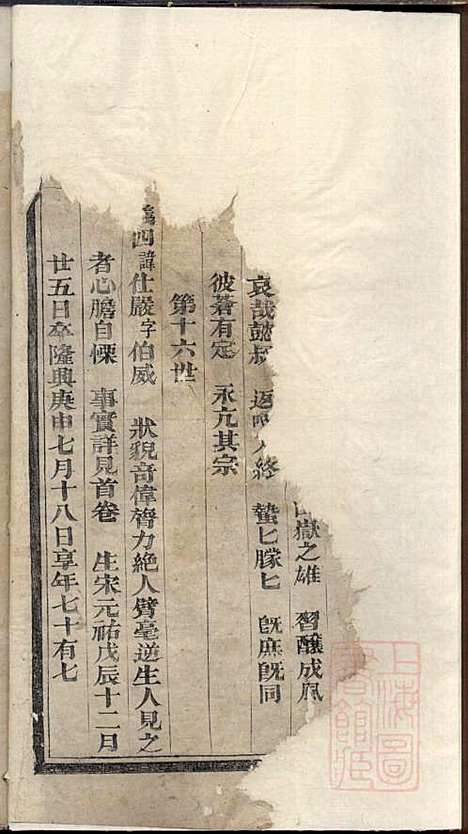 嶽之雄 習釀成風
哀哉懿叔 返 人終 蟄匕朦匕 旣庶旣同
彼蒼有定 永亢其宗
第十六世
四諱仕嚴字伯威 狀貌竒偉膂力絕人臂毫逆生人見之
者心膽自慄 事實詳見首卷 生宋元祐戊辰十二月
廿五日卒隆興庚申七月十八日享年七十有七
上海圖
書館藏